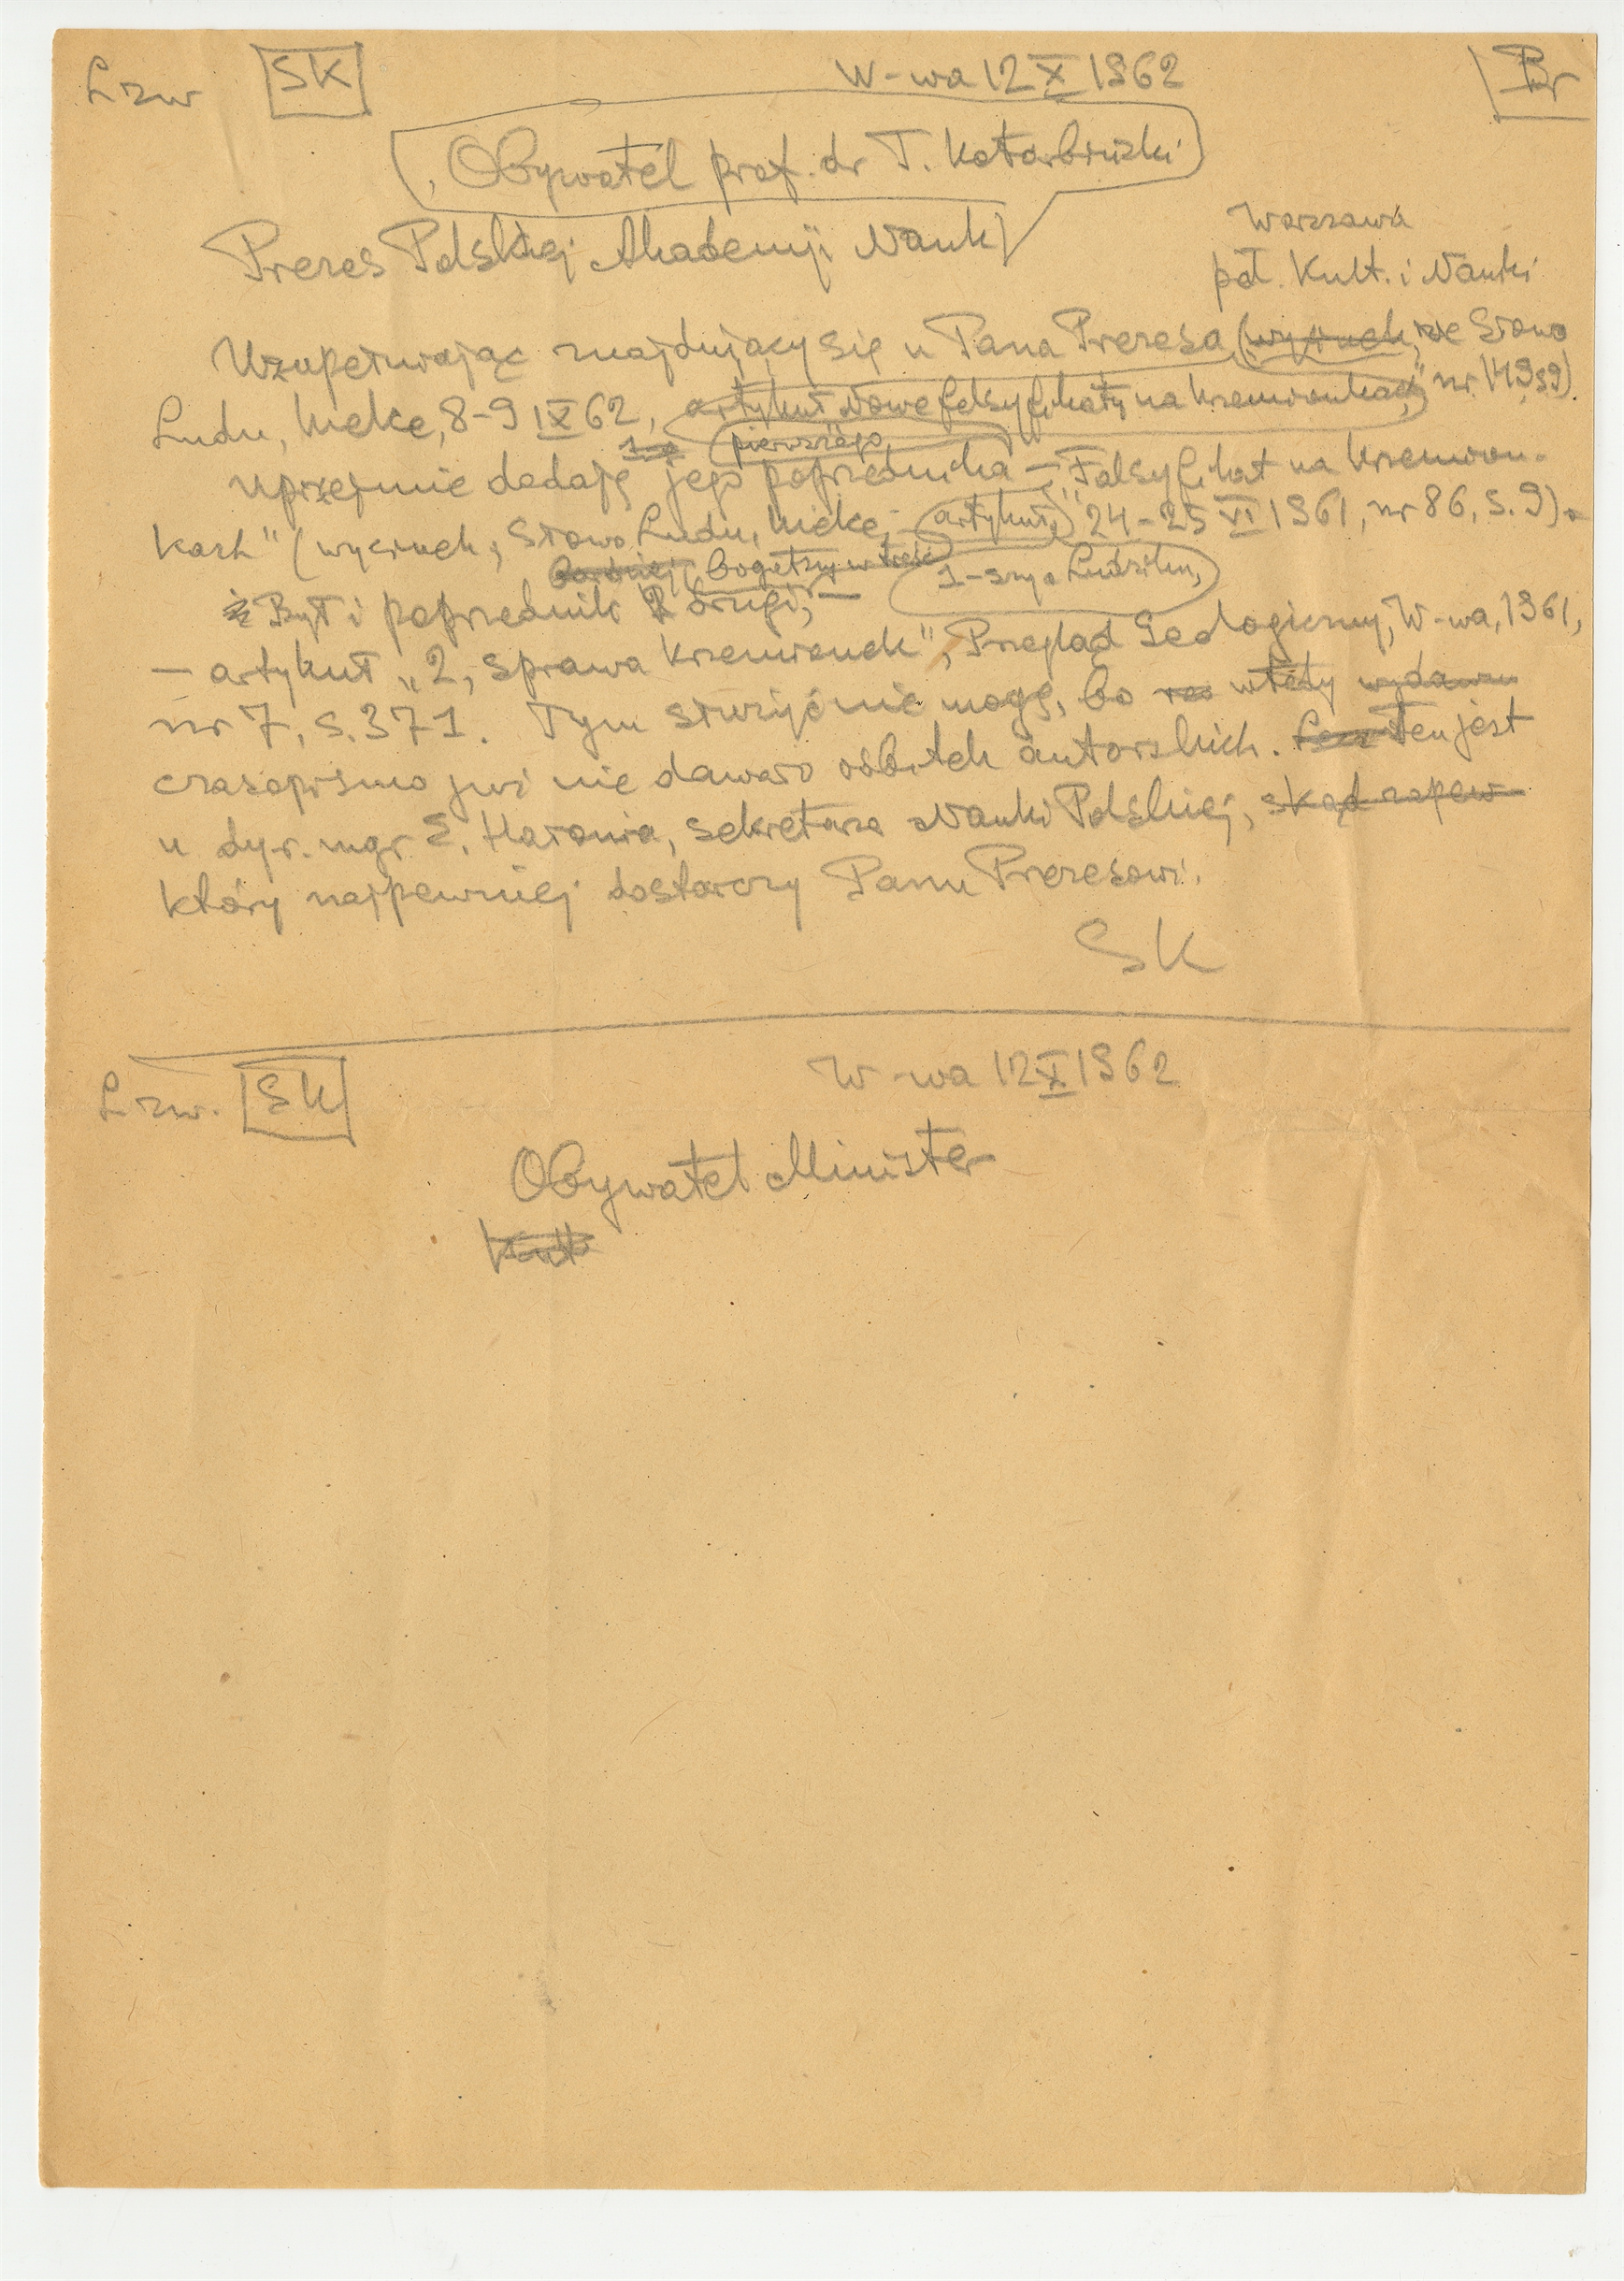 L rzw SK W-wa 12 X 1962 Br
Obywatel prof. dr T. Kotarbiński
Prezes Polskiej Akademji Nauk
Warszawa
pał. Kult. i Nauki
Uzupełniając znajdujący się u Pana Prezesa (wycinek, ze Słowo
Ludu, Kielce, 8-9 IX 62, artykuł Nowe falsyfikaty na Krzemionkach" nr 149 s 9).
1-go pierwszego
uprzejmie dodaję jego poprzednika — „Falsyfikat na Krzemion-
kach" (wycinek, Słowo Ludu, Kielce, artykuł, 24-25 VI 1961, nr 86, s. 9).
bardziej bogatszy w treść 1-szy a Ludziku,
Był i poprzednik 2 drugi, —
— artykuł „2, Sprawa Krzemionek", Przegląd Geologiczny, W-wa, 1961,
nr 7, s. 371. Tym służyć nie mogę, bo wtedy wydawn
czasopismo już nie dawało odbitek autorskich. Lecz Ten jest
u dyr. mgr E. Hałonia, sekretarza Nauki Polskiej, skąd zapew-
który najpewniej dostarczy Panu Prezesowi.
SK
L rzw. SK W-wa 12 X 1962
Obywatel Minister
Kult